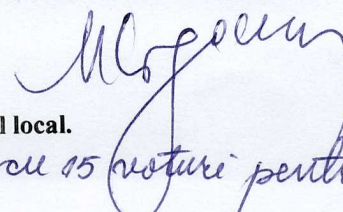 l local.
cu 15 voturi pentr